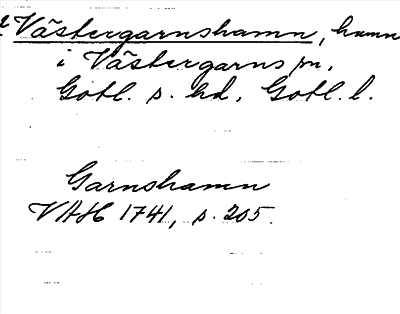 Västergarnshamn, hamn
i Västergarns sn,
Gotl. s. hd, Gotl. l.
Garnshamn
VAH 1741, s. 205.